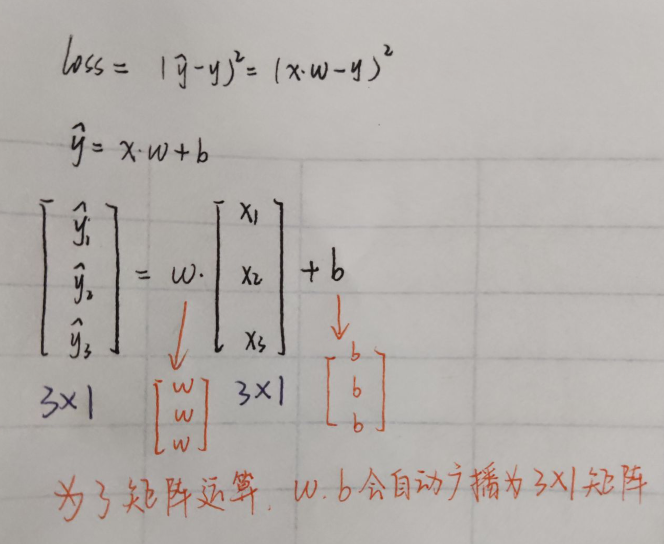 loss = (ŷ-y)² = (x·w-y)²
ŷ = x·w+b
[ŷ₁ ŷ₂ ŷ₃] = w· [x₁ x₂ x₃] + b
3×1 [w w w] 3×1 [b b b]
为了矩阵运算, w.b会自动广播为3×1矩阵